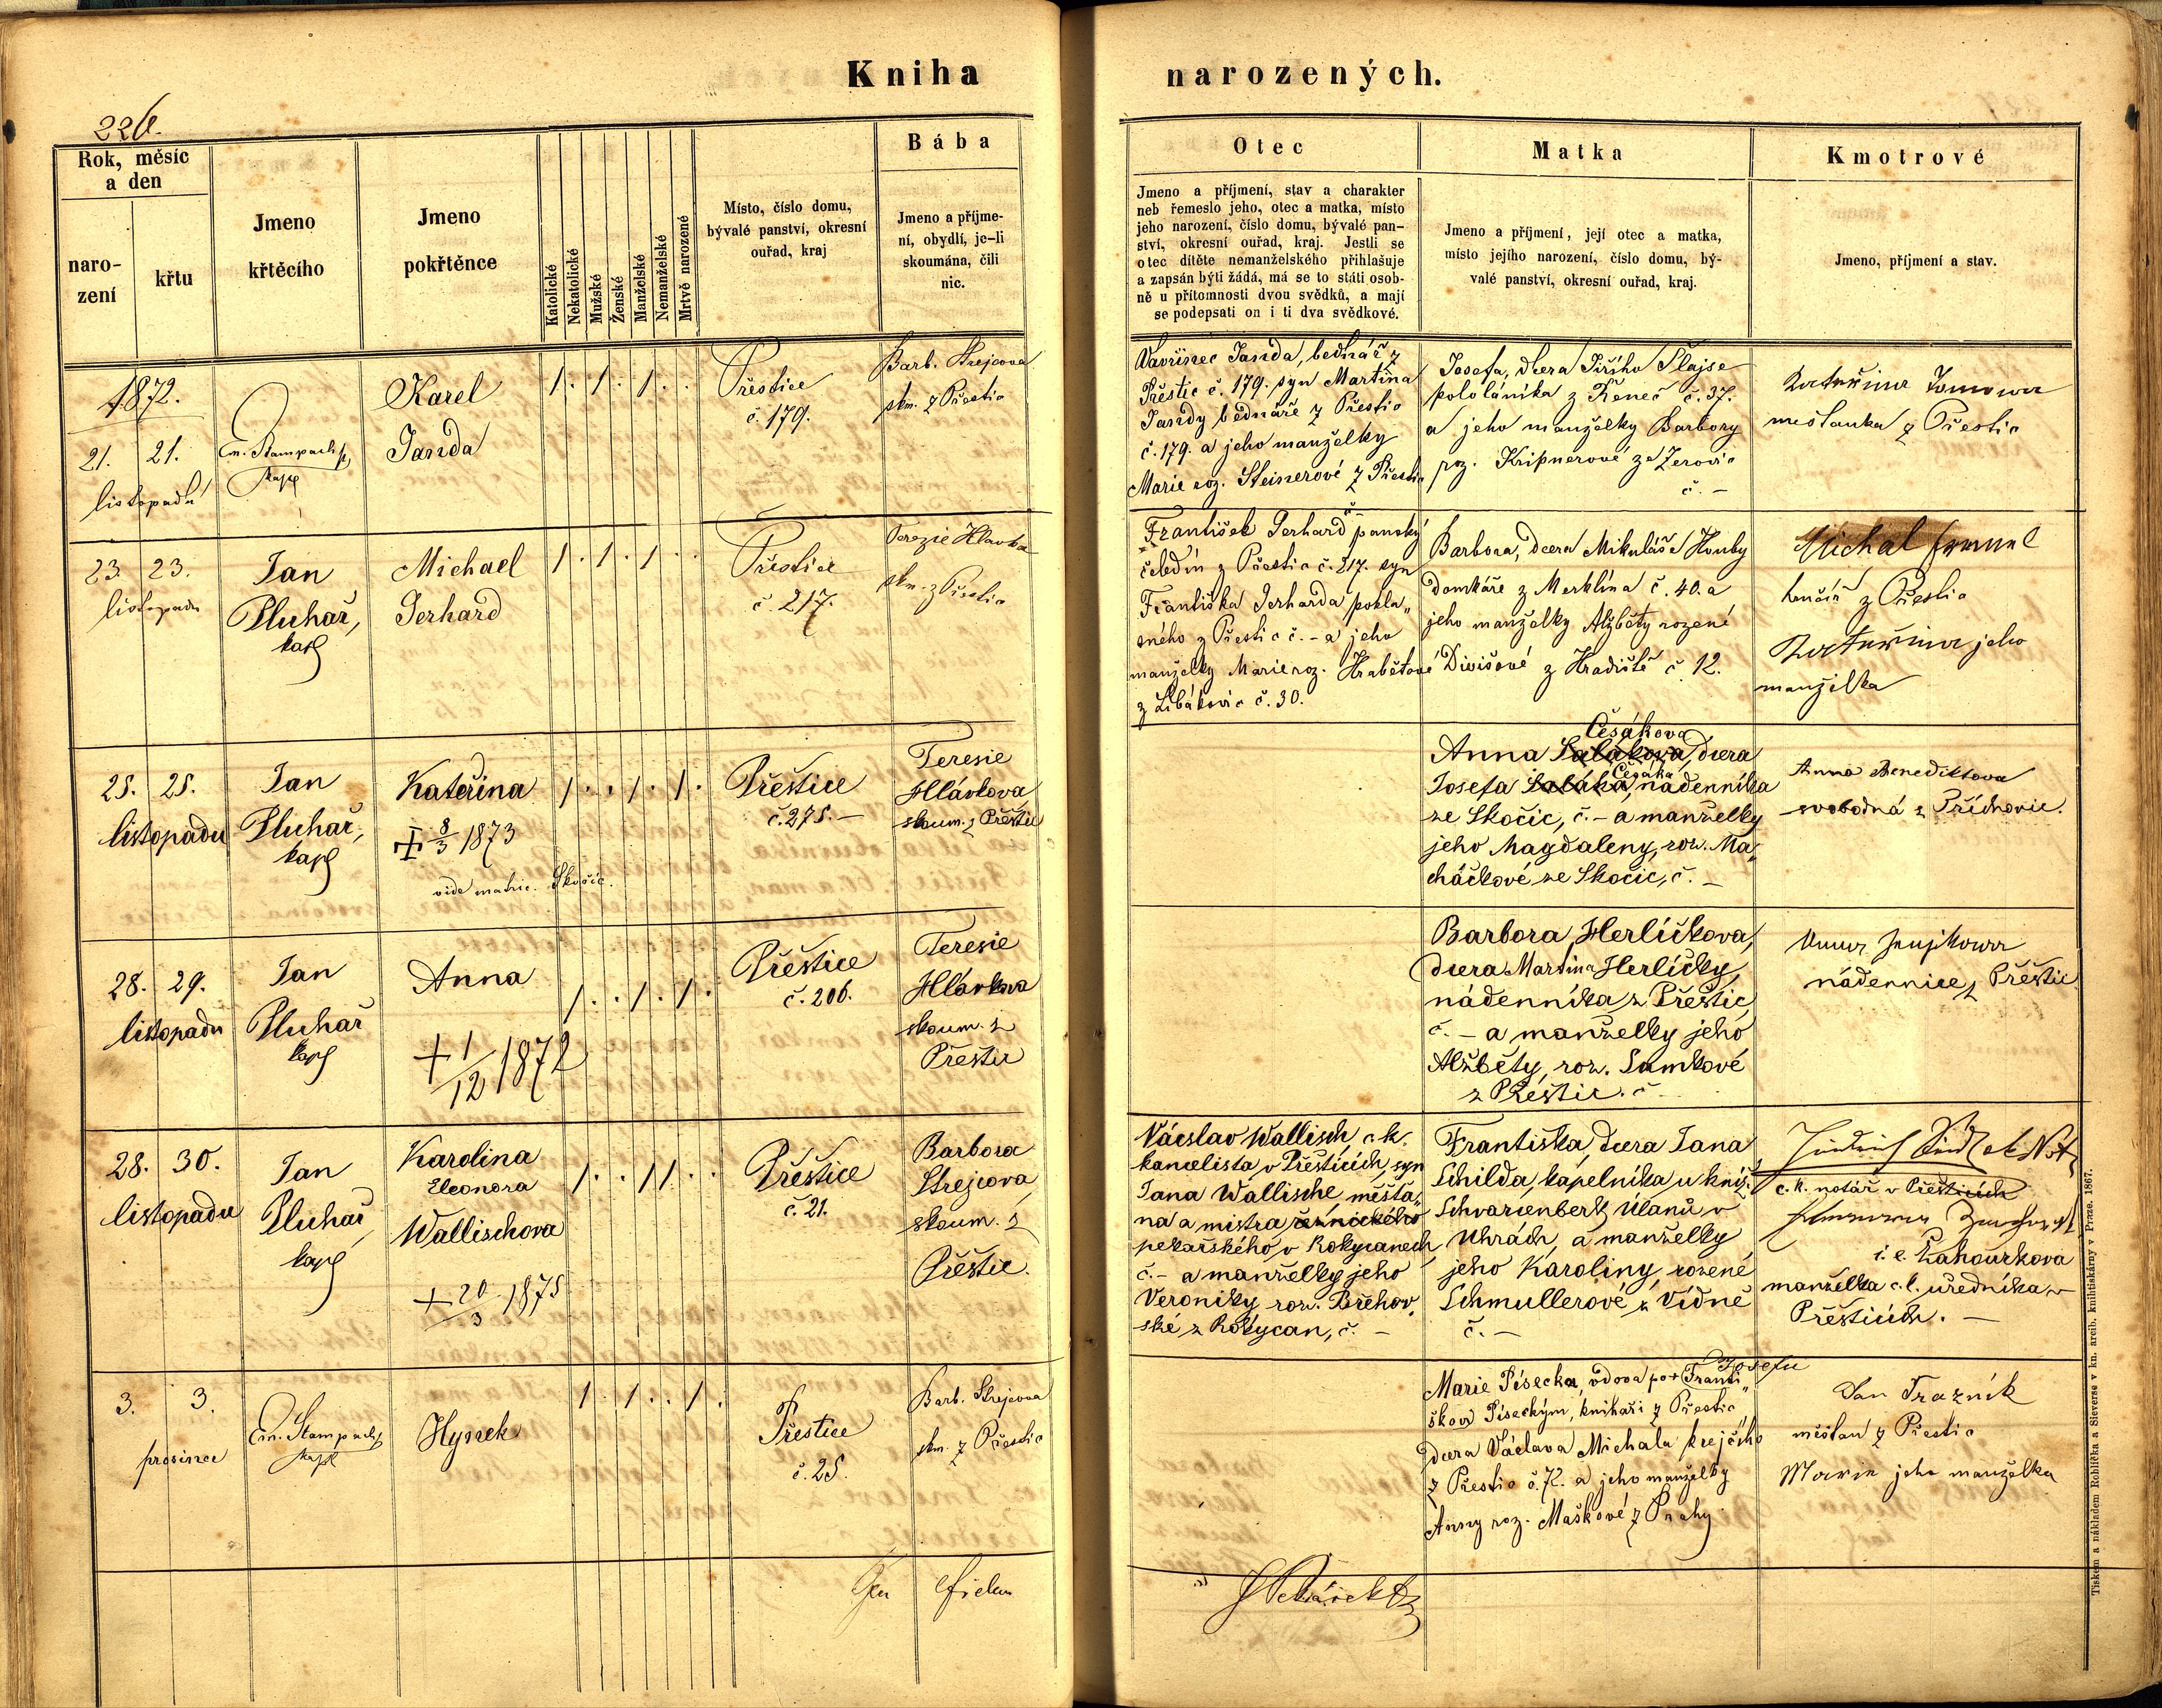 Kniha
narozených.
226.
Rok, měsíc
a den
naro-
zení
křtu
Jmeno
křtěcího
Jmeno
pokřtěnce
Katolické
Nekatolické
Mužské
Ženské
Manželské
Nemanželské
Mrtvě narozené
Místo, číslo domu,
bývalé panství, okresní
ouřad, kraj
Bába
Jmeno a příjme-
ní, obydlí, je-li
skoumána, čili
nic.
Otec
Jmeno a příjmení, stav a charakter
neb řemeslo jeho, otec a matka, místo
jeho narození, číslo domu, bývalé pan-
ství, okresní ouřad, kraj. Jestli se
otec dítěte nemanželského přihlašuje
a zapsán býti žádá, má se to státi osob-
ně u přítomnosti dvou svědků, a mají
se podepsati on i ti dva svědkové.
Matka
Jmeno a příjmení, její otec a matka,
místo jejího narození, číslo domu, bý-
valé panství, okresní ouřad, kraj.
Kmotrové
Jmeno, příjmení a stav.
1872.
21. 21.
listopadu
Em. Stampach
kapl
Karel
Janda
1. 1. 1. .
Přestice
č. 179.
Barb. Strejcova
skm. z Přestic
Vavřinec Janda, bednář z
Přestic č. 179. syn Martina
Jandy bednáře z Přestic
č. 179. a jeho manželky
Marie roz. Steinerové z Přestic
č. –
Josefa, dcera Jiřího Šlajse
pololáníka z Řeneč č. 37.
a jeho manželky Barbory
roz. Kripnerové ze Zerovic
č. –
Kateřina Tomowa
mešťanka z Přestic
23. 23.
listopadu
Jan
Pluhař,
kapl
Michael
Gerhard
1. 1. 1. .
Přestice
č. 217.
Terezie Hlavka
skm. z Přestic
František Gerhard panský
čeledín z Přestic č. 217. syn
Františka Gerharda pokla„
sného z Přestic č. – a jeho
manželky Marie roz. Hrabětové
z Libákovic č. 30.
Barbora, dcera Mikuláše Houby
domkáře z Merklína č. 40. a
jeho manželky Alžběty rozené
Divišové z Hradiště č. 12.
Michal
hončíř z Přestic
Kateřina jeho
manželka
25. 25.
listopadu
Jan
Pluhař,
kapl
Kateřina
8/3 1873
vide matric. Skočic.
1. . 1. 1.
Přeštice
č. 275. –
Teresie
Hlávkova,
skoum. z Přeštic
Čésákova
Anna Saláková, dcera
Čésáka
Josefa Saláka, nádenníka
ze Skočic, č. – a manželky
jeho Magdaleny, roz. Ma„
cháčkové ze Skočic, č. –
Anna Benediktova
svobodná z Příchovic.
28. 29.
listopadu
Jan
Pluhař
kapl
Anna
+ 1/12 1872
1. . 1. 1.
Přeštice
č. 206.
Teresie
Hlávkova
skoum. z
Přeštic
Barbora Herlíčkova,
dcera Martina Herlíčky,
nádenníka z Přeštic,
č. – a manželky jeho
Alžběty, roz. Samkové
z Přeštic. č –
Anna
nádennice z Přeštic
28. 30.
listopadu
Jan
Pluhař,
kapl
Karolina
Eleonora
Wallischova
+ 20/3 1875
1. . 11. .
Přeštice
č. 21.
Barbora
Strejcova,
skoum. z
Přeštic.
Václav Wallisch, c. k.
kancelista v Přešticích, syn
Jana Wallische, měšťa„
na a mistra řeznického
pekařského v Rokycanech,
č. – a manželky jeho
Veroniky roz. Břehov„
ské z Rokycan, č. –
Františka, dcera Jana
Schilda, kapelníka u kníž.
Schvarzenberk Ulanů v
Uhrách, a manželky
jeho Karoliny, rozené
Schmullerové z Vídně
č. –
c. k. notář v Přešticích
i. e. Zahourkova
manželka c. k. uředníka v
Přešticích. –
3. 3.
prosince
Em. Stampach
kapl
Hynek
1. 1. . 1.
Přestice
č. 25.
Barb. Strejcova
skm. z Přestic
Josefu
Marie Písecka, vdova po + Franti„
škovi Píseckým, knihaři z Přestic
dcera Václava Michala krejčího
z Přestic č. 72. a jeho manželky
Anny roz. Maškové z Prahy
Jan Trazník
měšťan z Přestic
Marie jeho manželka
Tiskem a nákladem Rohlíčka a Sieverse v kn. arcib. knihtiskárny v Praze. 1867.